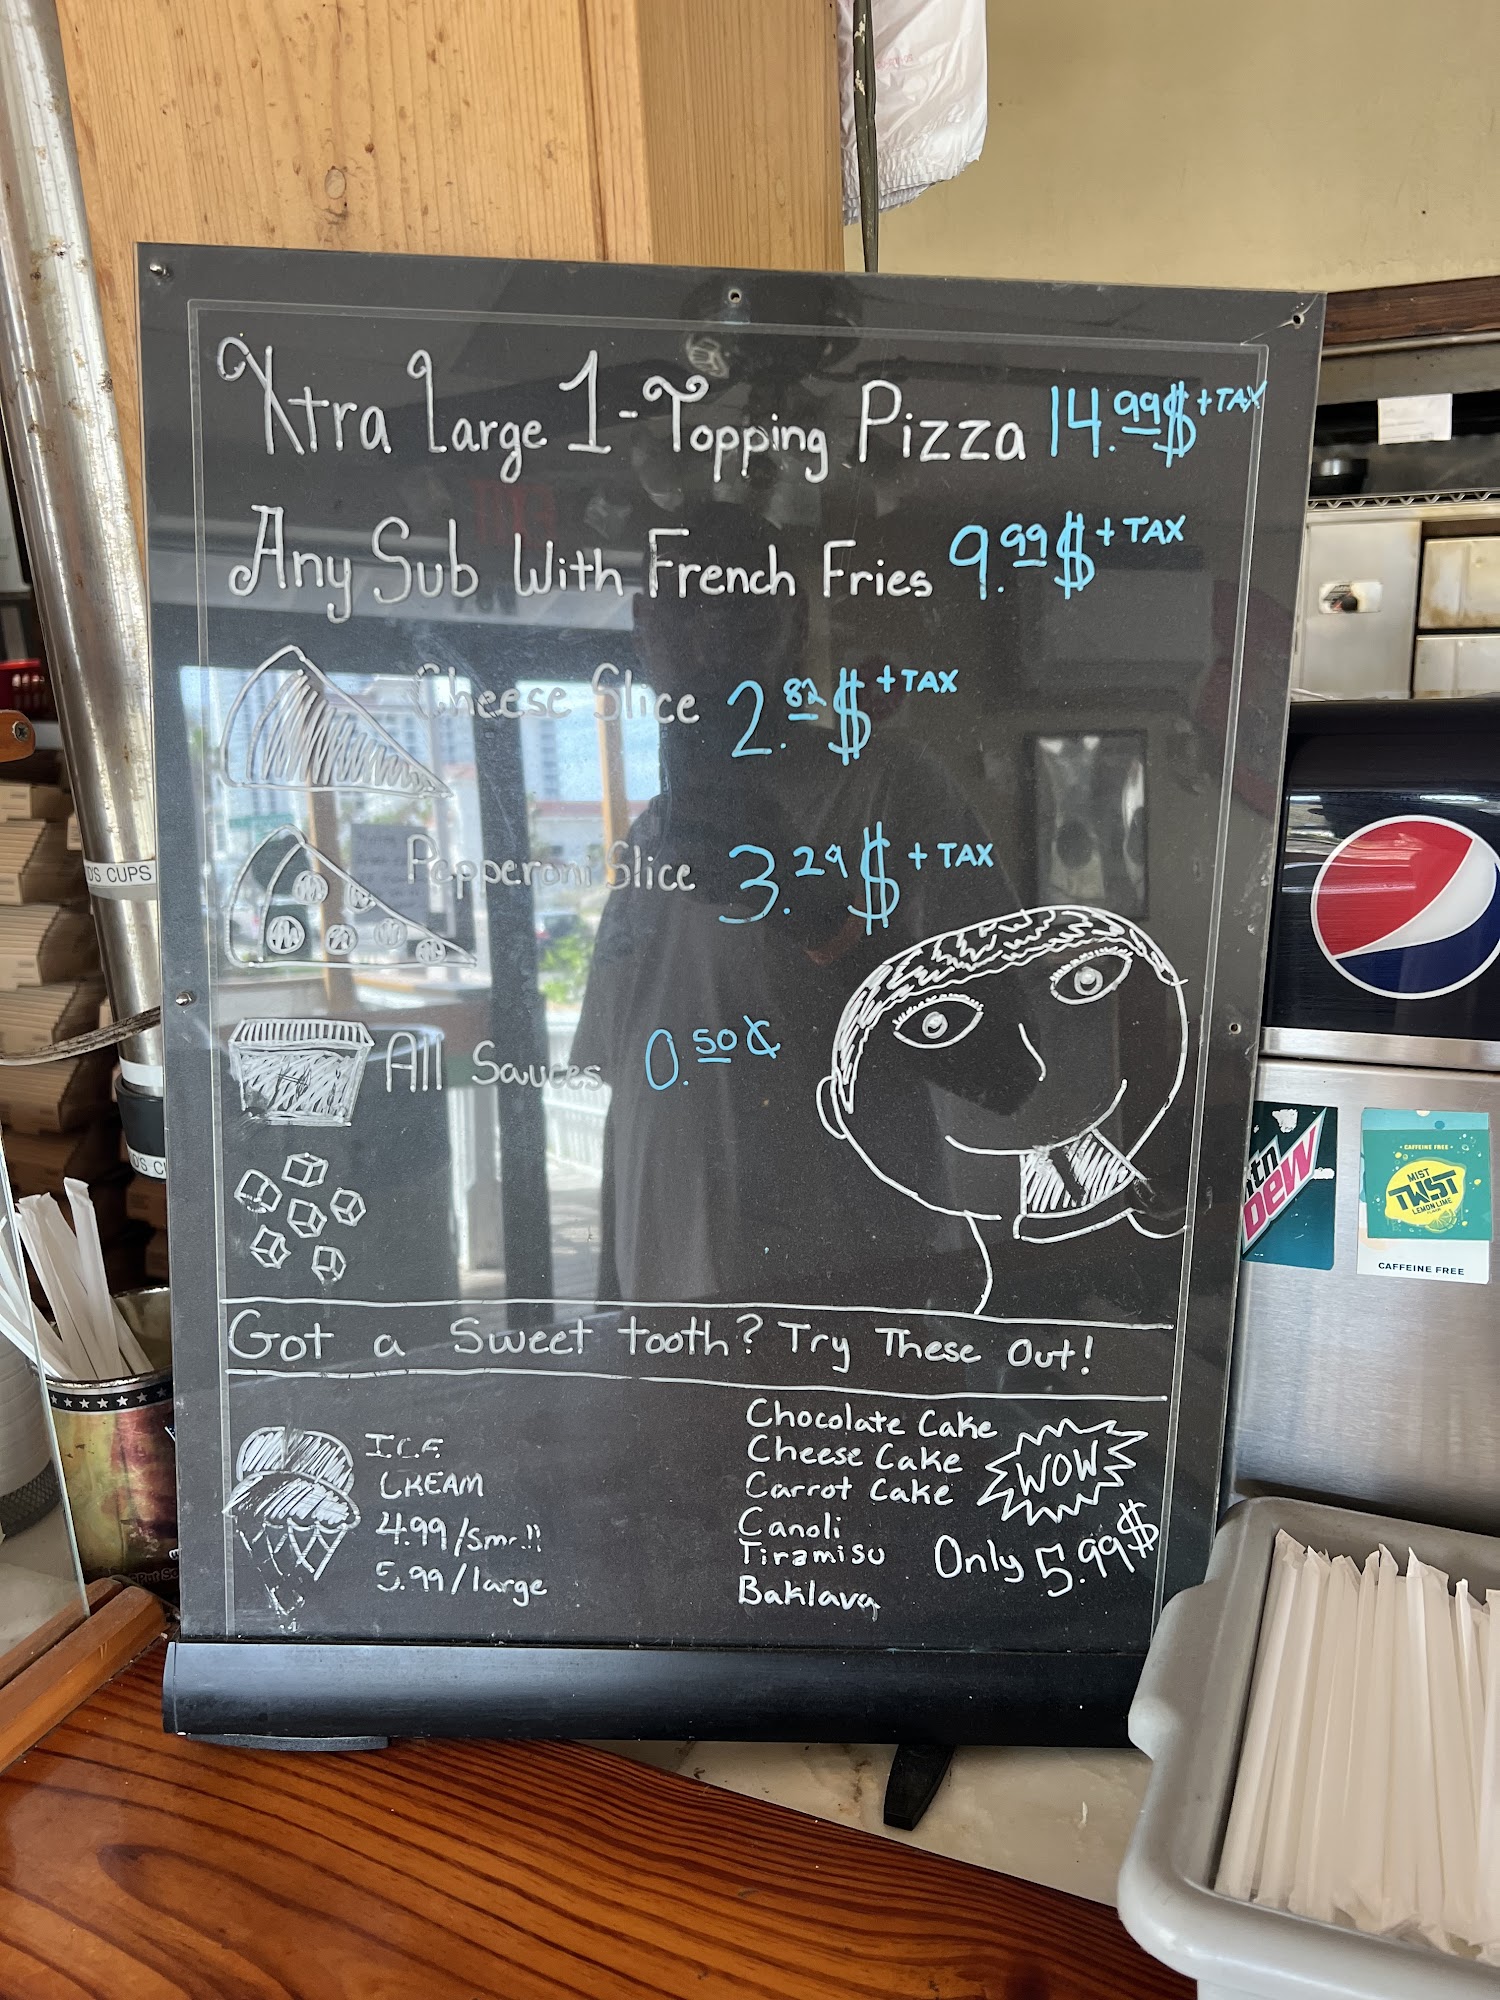 Xtra Large 1-Topping Pizza 14.99$ + TAX
Any Sub With French Fries 9.99$ + TAX
Cheese Slice 2.82$ + TAX
Pepperoni Slice 3.29$ + TAX
All Sauces 0.50¢
Got a Sweet tooth? Try These Out!
ICE
CREAM
4.99/Small
5.99/large
Chocolate Cake
Cheese Cake
Carrot Cake
Canoli
Tiramisu
Baklava
WOW
Only 5.99$
DS CUPS
mtn
DEW
CAFFEINE FREE
MIST
TWST
LEMON LIME
CAFFEINE FREE